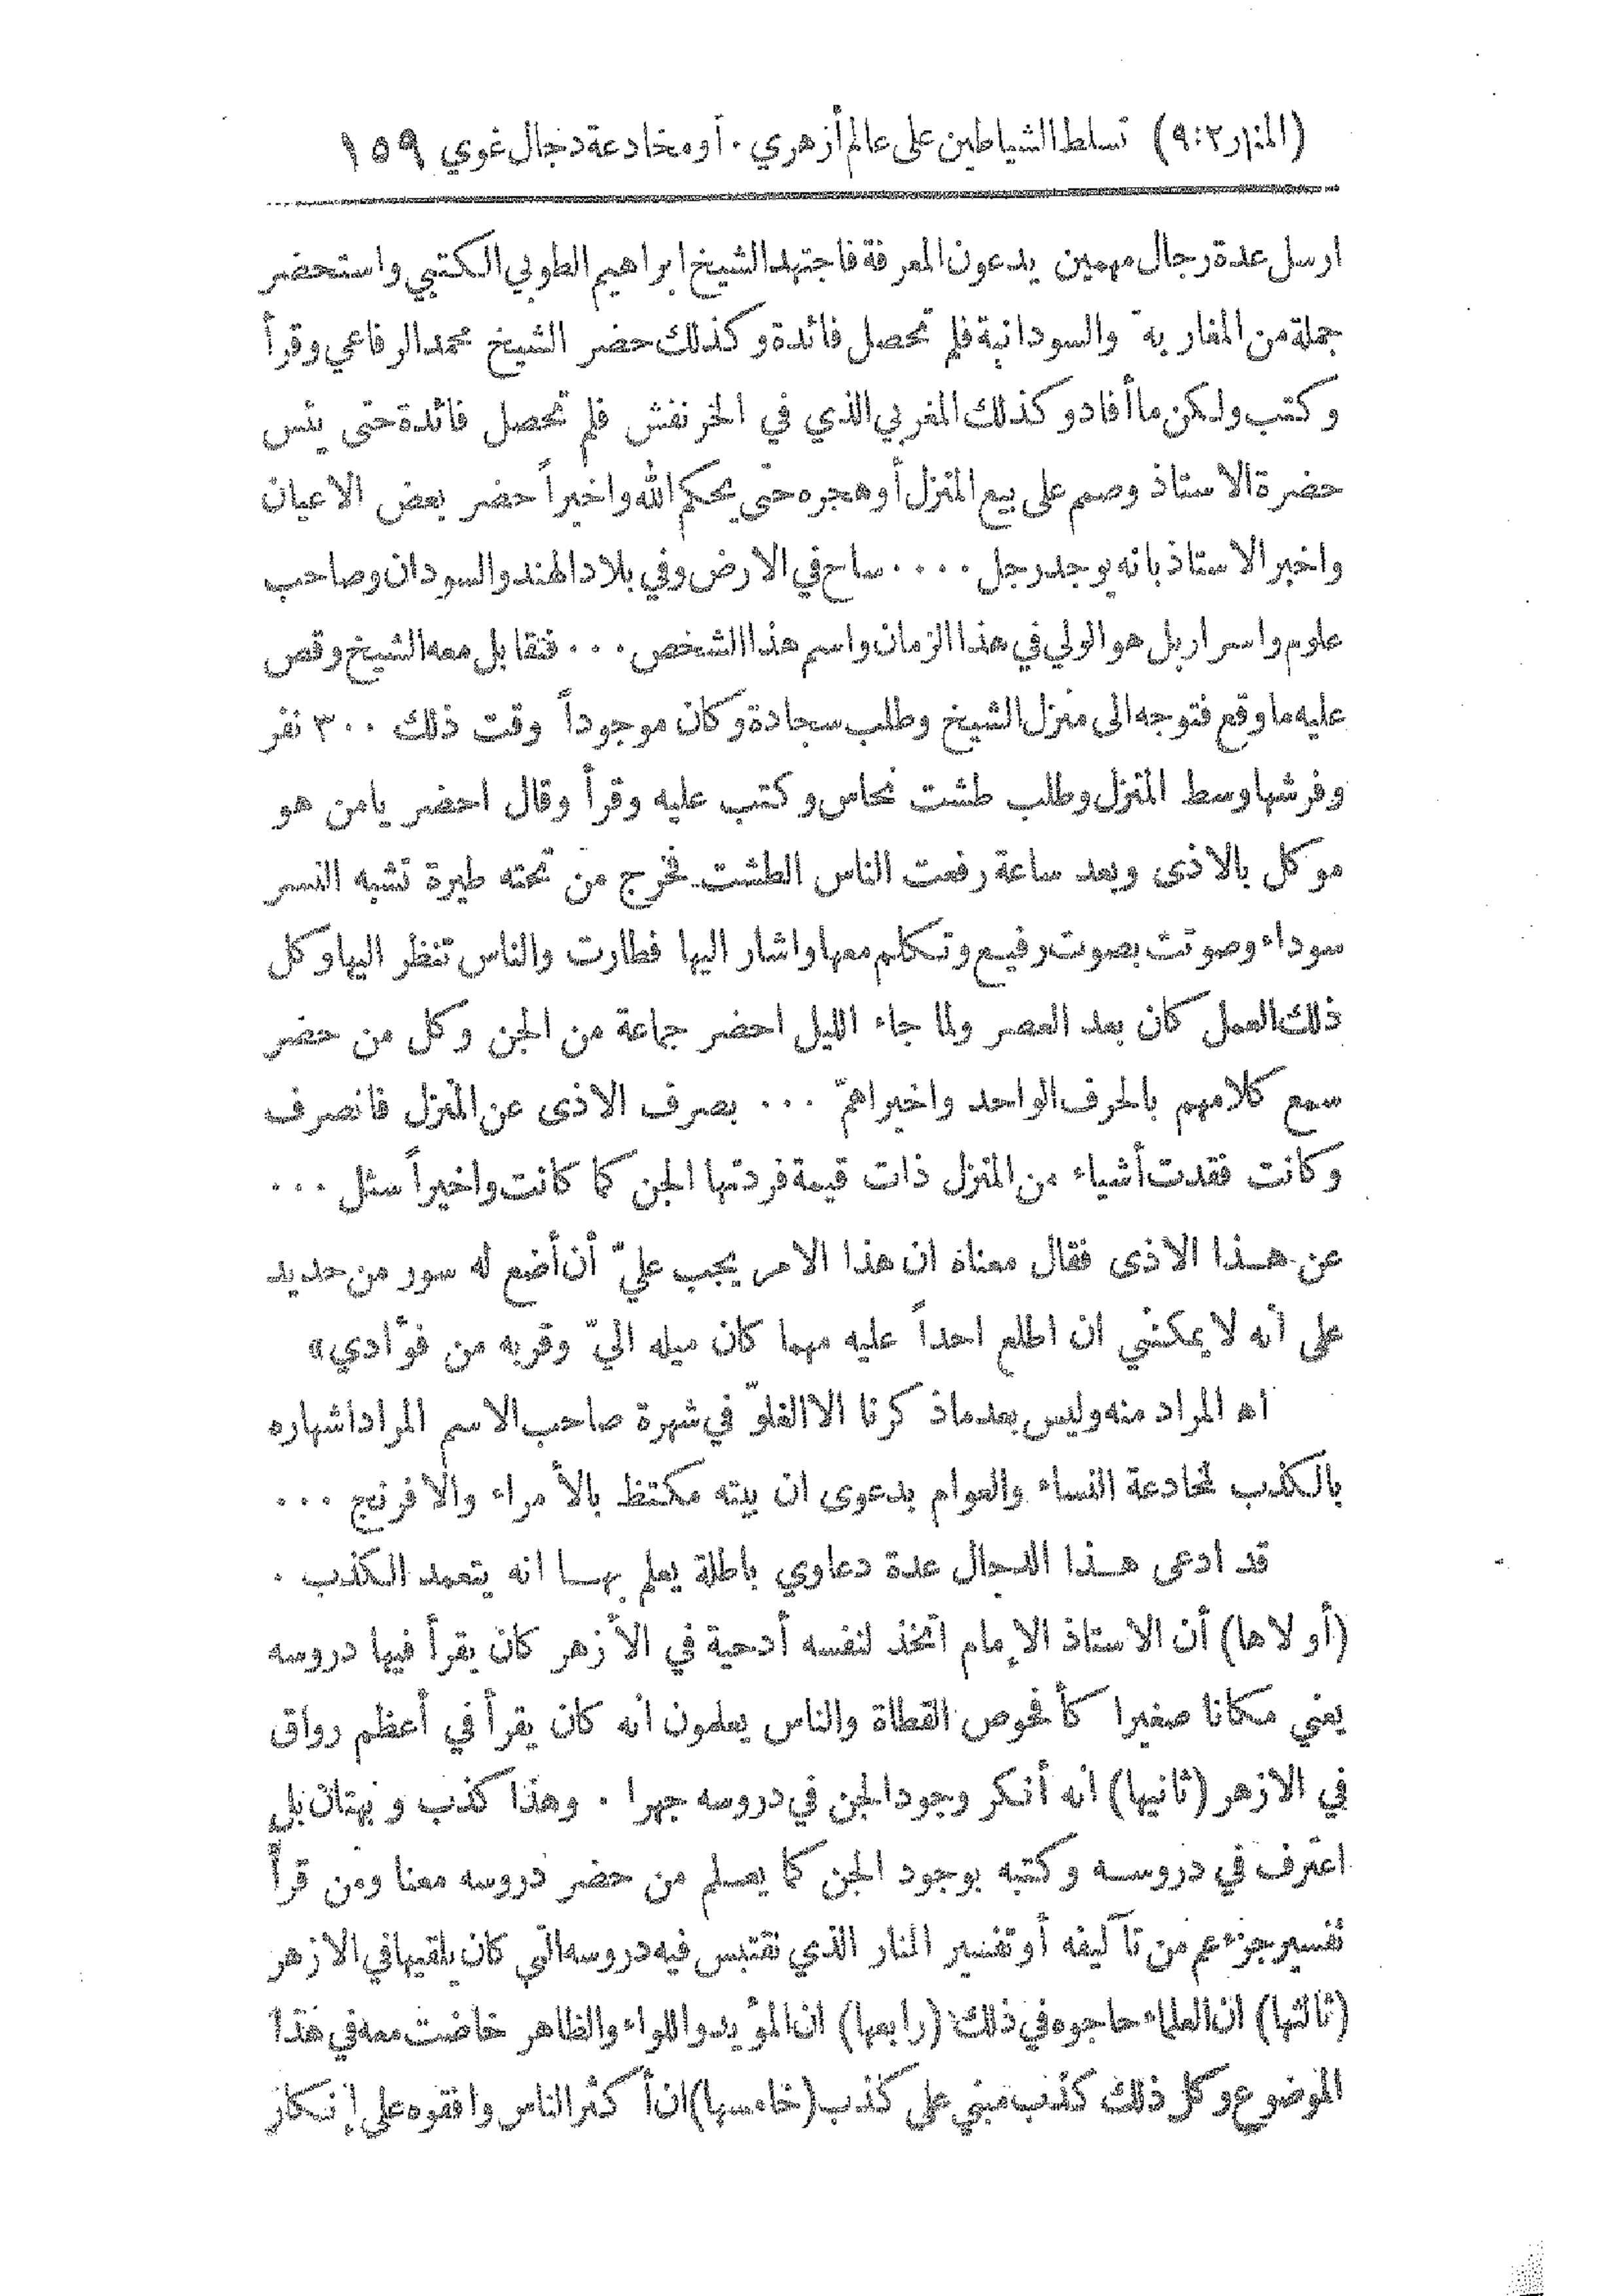 (المنار ٩:٢) تسلط الشياطين على عالم أزهري . أو مخادعة دجال غوي ١٥٩
ارسل عدة رجال مهمين يدعون المعرفة فاجتهد الشيخ ابراهيم الطوبي الكتبي واستحضر
جملة من المغاربه والسودانية فلم تحصل فائدة وكذلك حضر الشيخ محمد الرفاعي وقرأ
وكتب ولكن ما أفاد وكذلك المغربي الذي في الخرنفش فلم تحصل فائدة حتى يئس
حضرة الاستاذ وصم على بيع المنزل أو هجره حتى يحكم الله واخيراً حضر بعض الاعيان
واخبر الاستاذ بانه يوجد رجل .... ساح في الارض وفي بلاد الهند والسودان وصاحب
علوم واسرار بل هو الولي في هذا الزمان واسم هذا الشخص ... فتقابل معه الشيخ وقص
عليه ما وقع فتوجه الى منزل الشيخ وطلب سجادة وكان موجوداً وقت ذلك ٣٠٠ نفر
وفرشها وسط المنزل وطلب طشت نحاس وكتب عليه وقرأ وقال احضر يامن هو
موكل بالاذى وبعد ساعة رفعت الناس الطشت فخرج من تحته طيرة تشبه النسر
سوداء وصوتت بصوت رفيع وتكلم معها واشار اليها فطارت والناس تنظر اليها وكل
ذلك العمل كان بعد العصر ولما جاء الليل احضر جماعة من الجن وكل من حضر
سمع كلامهم بالحرف الواحد واخيرا همّ ... بصرف الاذى عن المنزل فانصرف
وكانت فقدت أشياء من المنزل ذات قيمة فردتها الجن كما كانت واخيراً سئل ...
عن هـذا الاذى فقال معناه ان هذا الامر يجب عليّ أن أضع له سور من حديد
على أنه لا يمكنني ان اطلع احداً عليه مهما كان ميله اليّ وقربه من فؤادي»
اه المراد منه وليس بعد ماذكرنا الا الغلوّ في شهرة صاحب الاسم المراد اشهاره
بالكذب لمخادعة النساء والعوام بدعوى ان بيته مكتظ بالأمراء والافرنج ...
قد ادعى هـذا الدجال عدة دعاوي باطلة يعلم بهـا انه يتعمد الكذب .
(أولاها) أن الاستاذ الإمام اتخذ لنفسه أدحية في الأزهر كان يقرأ فيها دروسه
يعني مكانا صغيرا كأفحوص القطاة والناس يعلمون انه كان يقرأ في أعظم رواق
في الازهر (ثانيها) انه أنكر وجود الجن في دروسه جهرا . وهذا كذب وبهتان بل
اعترف في دروسـه وكتبه بوجود الجن كما يعـلم من حضر دروسه معنا ومن قرأ
تفسير جزء عم من تآليفه أو تفسير المنار الذي نقتبس فيه دروسه التي كان يلقيها في الازهر
(ثالثها) ان العلماء حاجوه في ذلك (رابعها) ان المؤيد واللواء والظاهر خاضت معه في هذا
الموضوع وكل ذلك كذب مبني على كذب (خامسها) ان أكثر الناس وافقوه على إنكار